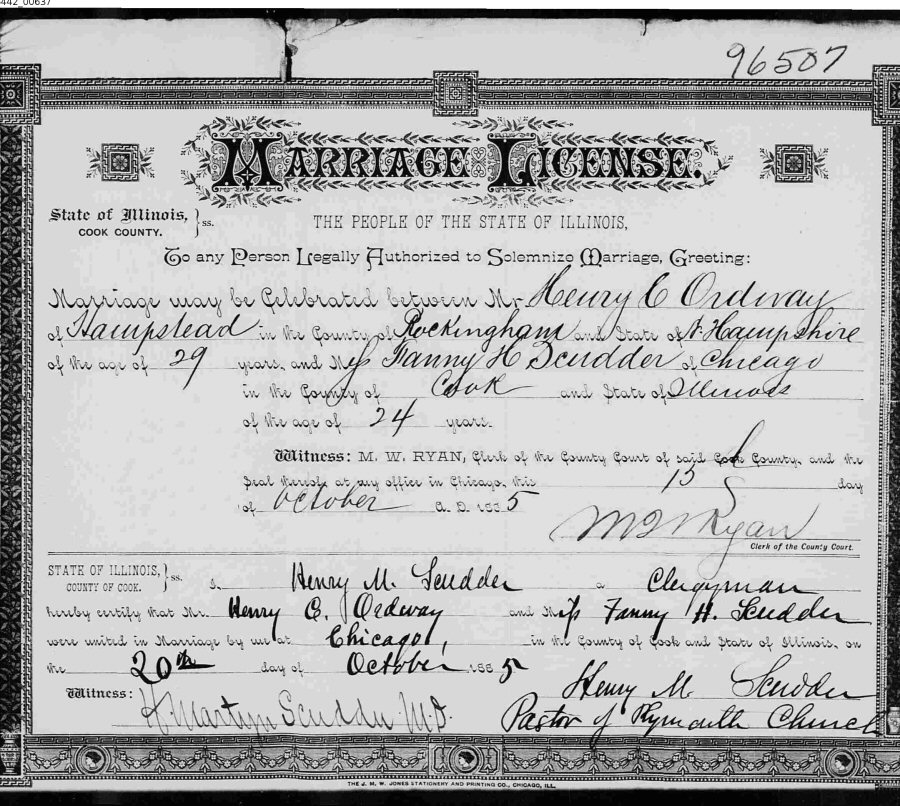 442_00637
96507
MARRIAGE LICENSE.
State of Illinois, } ss.
COOK COUNTY.
THE PEOPLE OF THE STATE OF ILLINOIS,
To any Person Legally Authorized to Solemnize Marriage, Greeting:
Marriage may be Celebrated between Mr Henry C Ordway
of Hampstead in the County of Rockingham and State of N. Hampshire
of the age of 29 years, and Miss Fanny H Scudder of Chicago
in the County of Cook and State of Illinois
of the age of 24 years.
Witness: M. W. RYAN, Clerk of the County Court of said Cook County, and the
Seal thereof, at my office in Chicago, this 15 day
of October A. D. 1885
M W Ryan
Clerk of the County Court.
STATE OF ILLINOIS, } ss.
COUNTY OF COOK.
I, Henry M. Scudder a Clergyman
hereby certify that Mr. Henry C. Ordway and Miss Fanny H. Scudder
were united in Marriage by me at Chicago, in the County of Cook and State of Illinois, on
the 20th day of October 1885
Witness: Henry M. Scudder
H. Martyn Scudder M.D. Pastor of Plymouth Church
THE J. M. W. JONES STATIONERY AND PRINTING CO., CHICAGO, ILL.